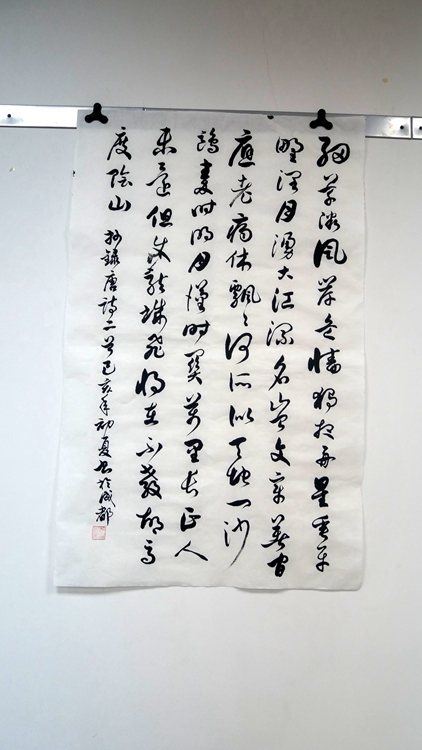 細草微風岸危檣獨夜舟星垂平
野闊月湧大江流名豈文章著官
應老病休飄〻何所似天地一沙
鷗秦時明月漢時關萬里長征人
未還但使龍城飛將在不教胡馬
度陰山 抄錄唐詩二首己亥年初夏書於成都